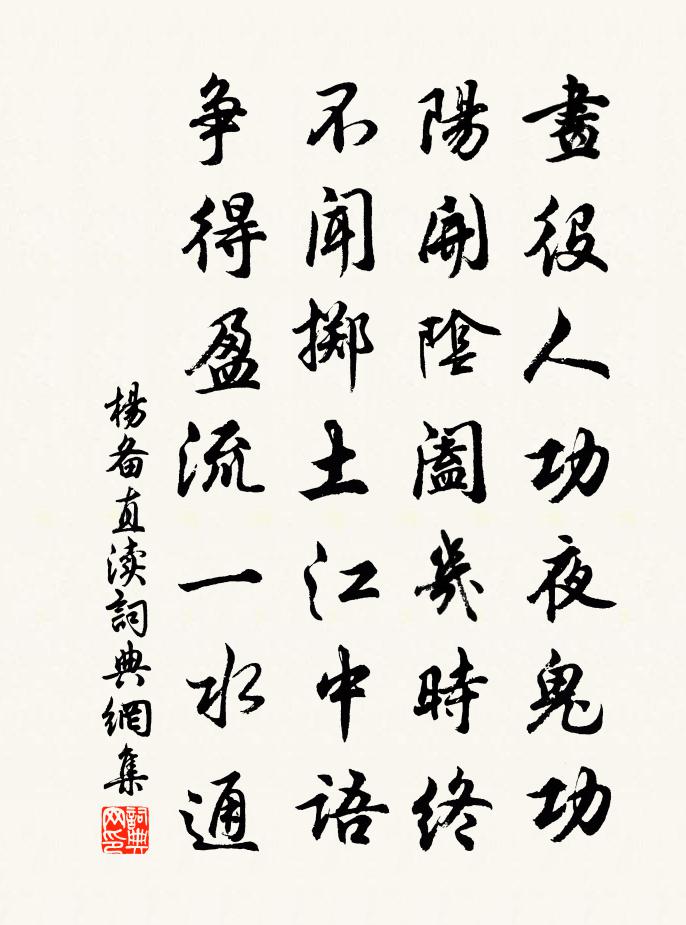 晝役人功夜鬼功
陽開陰闔幾時終
不聞擲土江中語
争得盈流一水通
楊备直渎詞典網集
詞典网印